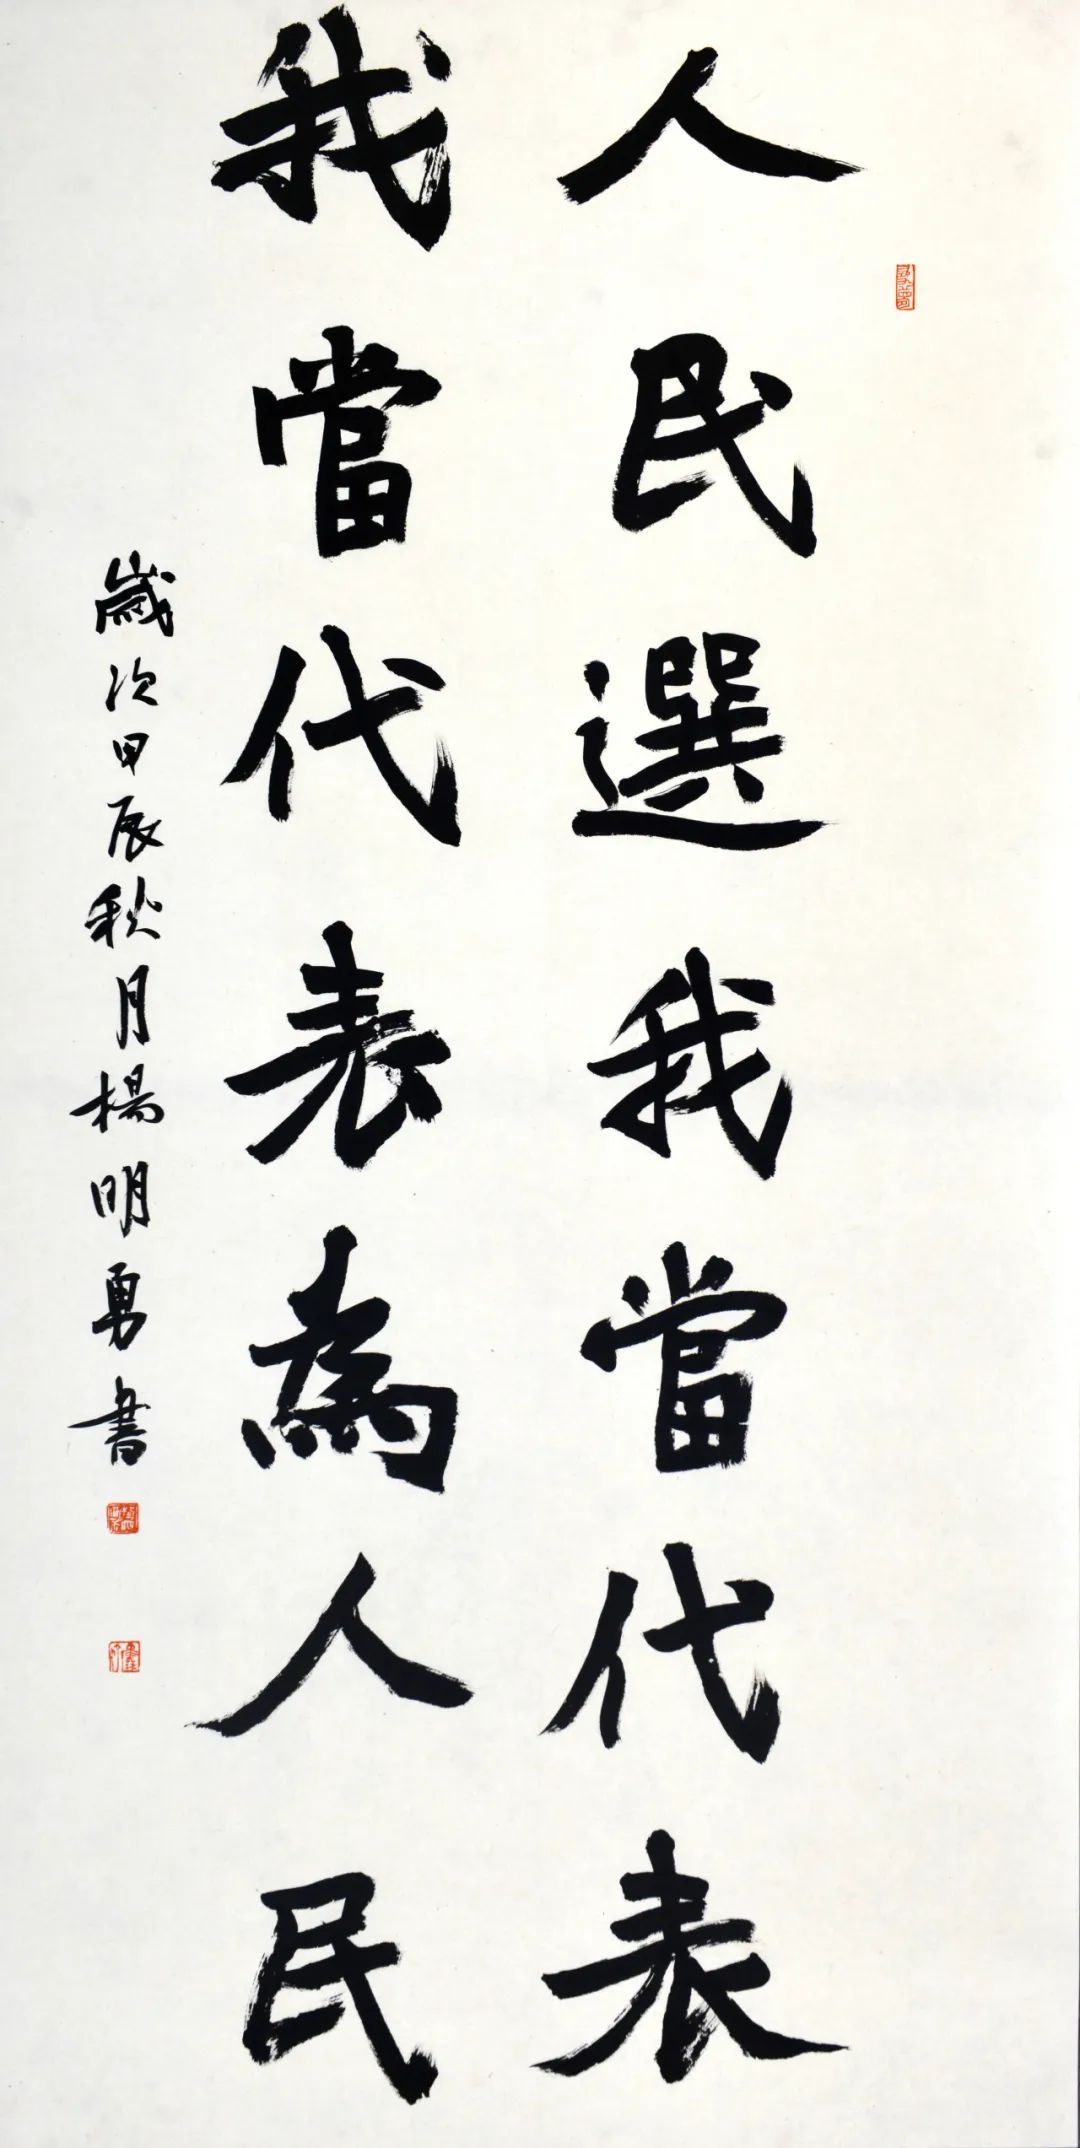 人民選我當代表
我當代表為人民
歲次甲辰秋月楊明勇書